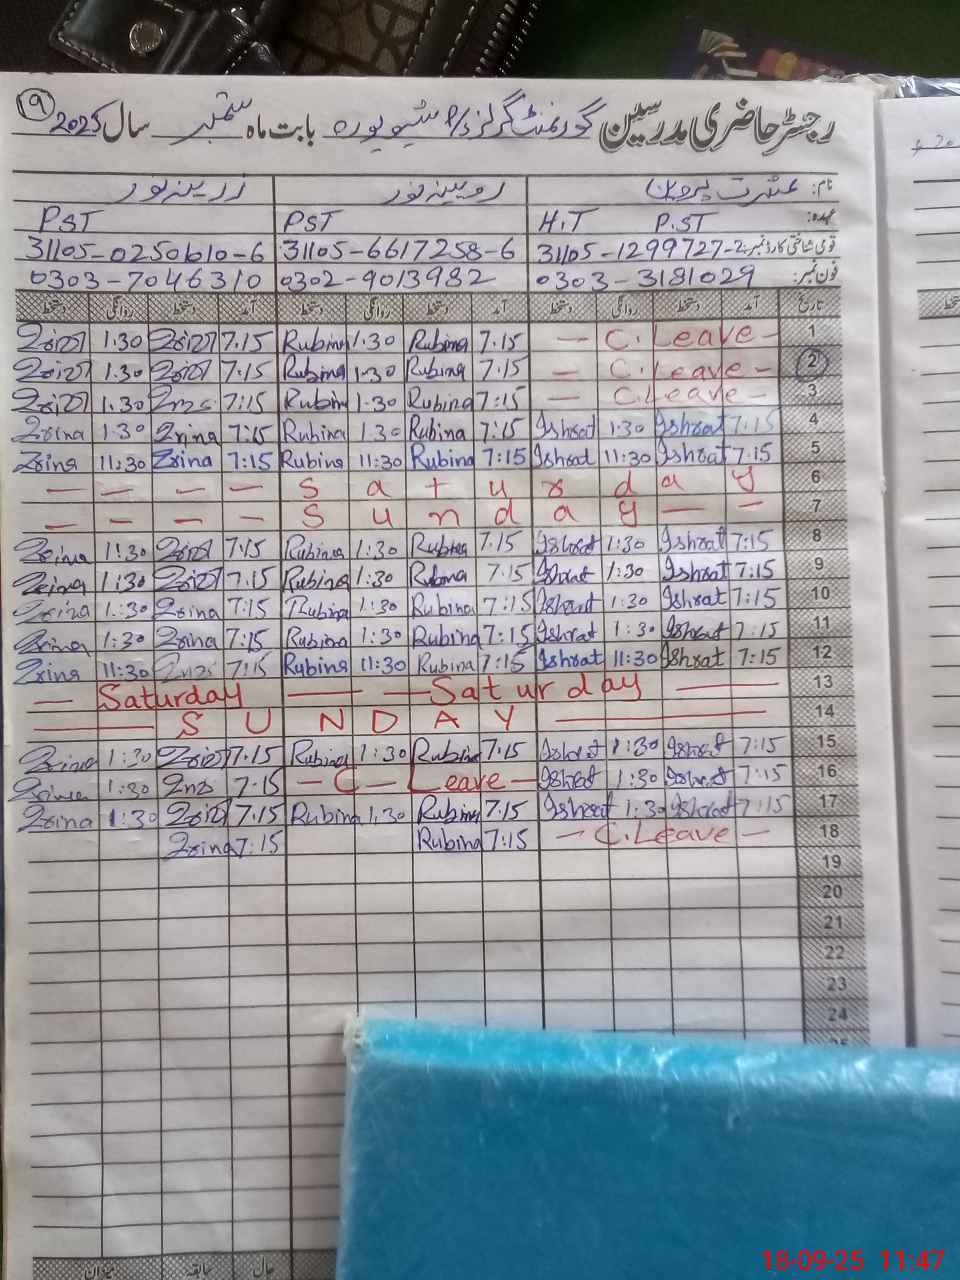 رجسٹر حاضری مدرسین گورنمنٹ گرلز P/S شیوپورہ بابت ماہ ستمبر سال 2025 ۹
نام: عشرت پروین روبینہ نور زرینہ نور
عہدہ: H.T P.ST PST PST
قومی شناختی کارڈ نمبر: 31105-1299727-2 31105-6617258-6 31105-0250610-6
فون نمبر: 0303-3181029 0302-9013982 0303-7046310
تاریخ آمد دستخط روانگی دستخط آمد دستخط روانگی دستخط آمد دستخط روانگی دستخط
1:30 7.15 Rubina 1:30 Rubina 7.15 — C. Leave - 1
1:30 7.15 Rubina 1:30 Rubina 7.15 — C. Leave - 2
1:30 7:15 Rubin 1:30 Rubina 7:15 — C. Leave - 3
Zrina 1:30 Zrina 7:15 Rubina 1:30 Rubina 7:15 Ishrat 1:30 Ishrat 7:15 4
Zrina 11:30 Zrina 7:15 Rubina 11:30 Rubina 7:15 Ishrat 11:30 Ishrat 7.15 5
— — — — S a t u r d a y 6
— — — — S u n d a y — — 7
Zrina 1:30 7:15 Rubina 1:30 Rubina 7.15 Ishrat 1:30 Ishrat 7:15 8
Zrina 1:30 7.15 Rubina 1:30 Rubina 7.15 Ishrat 1:30 Ishrat 7:15 9
Zrina 1:30 Zrina 7:15 Rubina 1:30 Rubina 7:15 Ishrat 1:30 Ishrat 7:15 10
Zrina 1:30 Zrina 7:15 Rubina 1:30 Rubina 7:15 Ishrat 1:30 Ishrat 7:15 11
Zrina 11:30 7:15 Rubina 11:30 Rubina 7:15 Ishrat 11:30 Ishrat 7:15 12
— Saturday —— — Saturday —— 13
—— S U N D A Y —— 14
Zrina 1:30 7.15 Rubina 1:30 Rubina 7.15 Ishrat 1:30 Ishrat 7:15 15
Zrina 1:30 7:15 — C — Leave — Ishrat 1:30 Ishrat 7:15 16
Zrina 1:30 7.15 Rubina 1:30 Rubina 7.15 Ishrat 1:30 Ishrat 7:15 17
Zrina 7:15 Rubina 7:15 — C. Leave — 18
19
20
21
22
23
24
میزان سابقہ حال
18-09-25 11:47